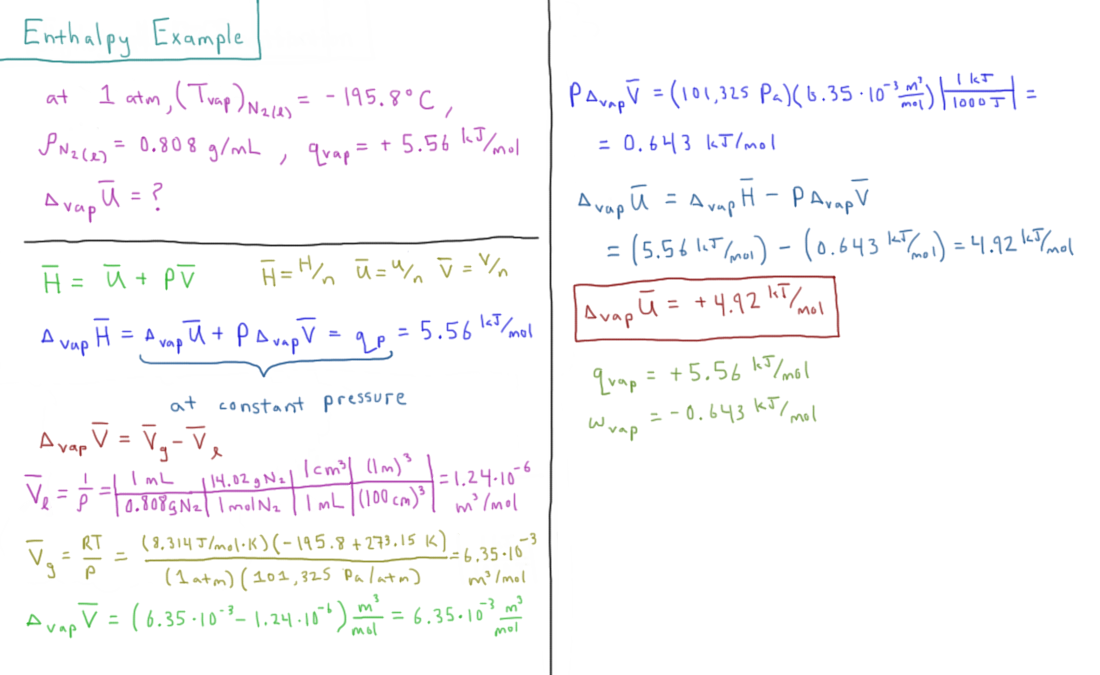 Enthalpy Example
at 1 atm, (T_vap)_N₂(ℓ) = -195.8°C,
ρ_N₂(ℓ) = 0.808 g/mL, q_vap = +5.56 kJ/mol
Δ_vap U̅ = ?
H̅ = U̅ + PV̅ H̅ = H/n U̅ = U/n V̅ = V/n
Δ_vap H̅ = Δ_vap U̅ + P Δ_vap V̅ = q_p = 5.56 kJ/mol
at constant pressure
Δ_vap V̅ = V̅_g - V̅_ℓ
V̅_ℓ = 1/ρ = | 1 mL / 0.808 g N₂ | 14.02 g N₂ / 1 mol N₂ | 1 cm³ / 1 mL | (1m)³ / (100 cm)³ | = 1.24·10⁻⁶ m³/mol
V̅_g = RT/P = (8.314 J/mol·K)(-195.8 + 273.15 K) / (1 atm)(101,325 Pa/atm) = 6.35·10⁻³ m³/mol
Δ_vap V̅ = (6.35·10⁻³ - 1.24·10⁻⁶) m³/mol = 6.35·10⁻³ m³/mol
P Δ_vap V̅ = (101,325 Pa)(6.35·10⁻³ m³/mol) | 1 kJ / 1000 J | =
= 0.643 kJ/mol
Δ_vap U̅ = Δ_vap H̅ - P Δ_vap V̅
= (5.56 kJ/mol) - (0.643 kJ/mol) = 4.92 kJ/mol
Δ_vap U̅ = +4.92 kJ/mol
q_vap = +5.56 kJ/mol
w_vap = -0.643 kJ/mol